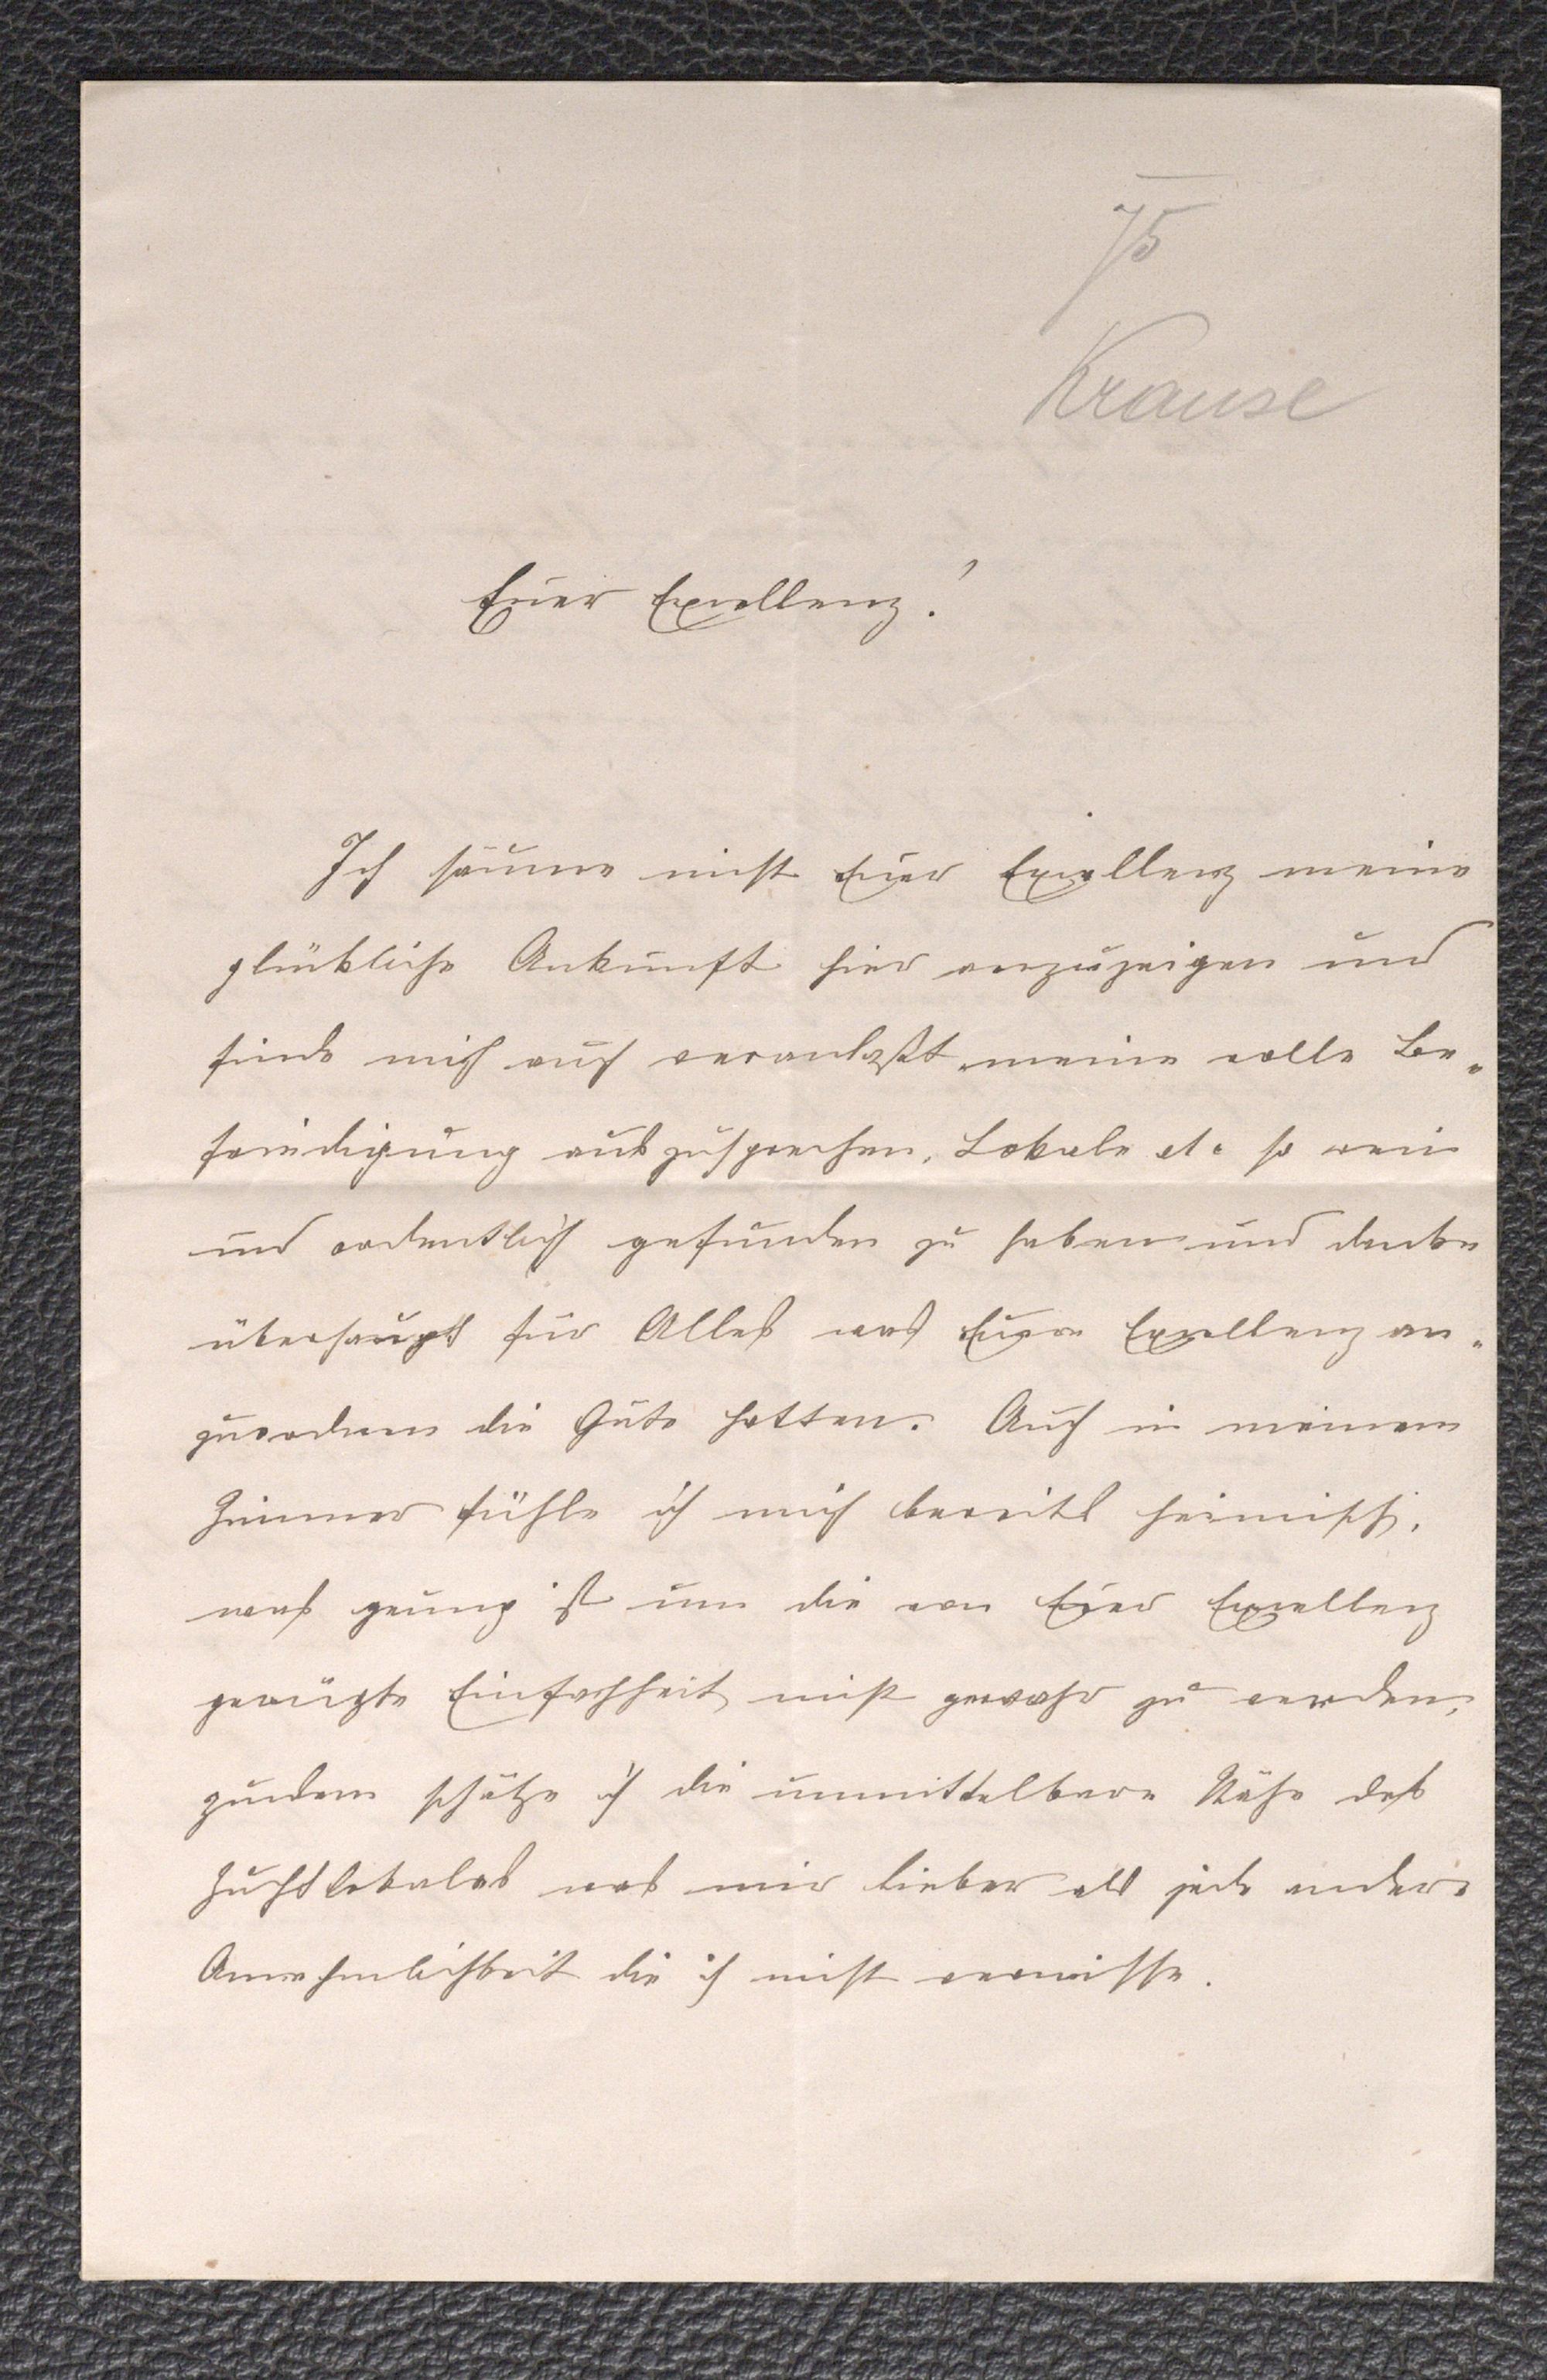 75
Krause
Euer Exzellenz!
Ich säume nicht Euer Exzellenz meine
glückliche Ankunft hier anzuzeigen und
finde mich auch veranlaßt meine volle Be„
friedigung auszusprechen, Lokale etc so rein
und ordentlich gefunden zu haben und danke
überhaupt für Alles was Eure Exzellenz an„
zuordnen die Güte hatten. Auch in meinem
Zimmer fühle ich mich bereits heimisch,
was genug ist um die von Euer Exzellenz
gerügte Einfachheit nicht gewahr zu werden,
zudem schätze ich die unmittelbare Nähe des
Zuchtlokales was mir lieber als jede andere
Annehmlichkeit die ich nicht vermisse.